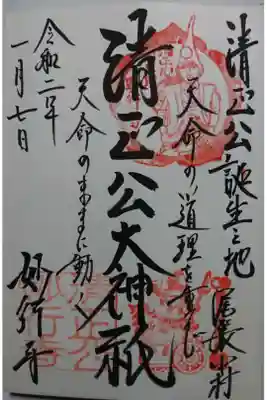 清正公誕生之地
尾張中村
天命の道理を重んじ
清正公大神祇
天命のままに動く
令和二年
一月七日
妙行寺